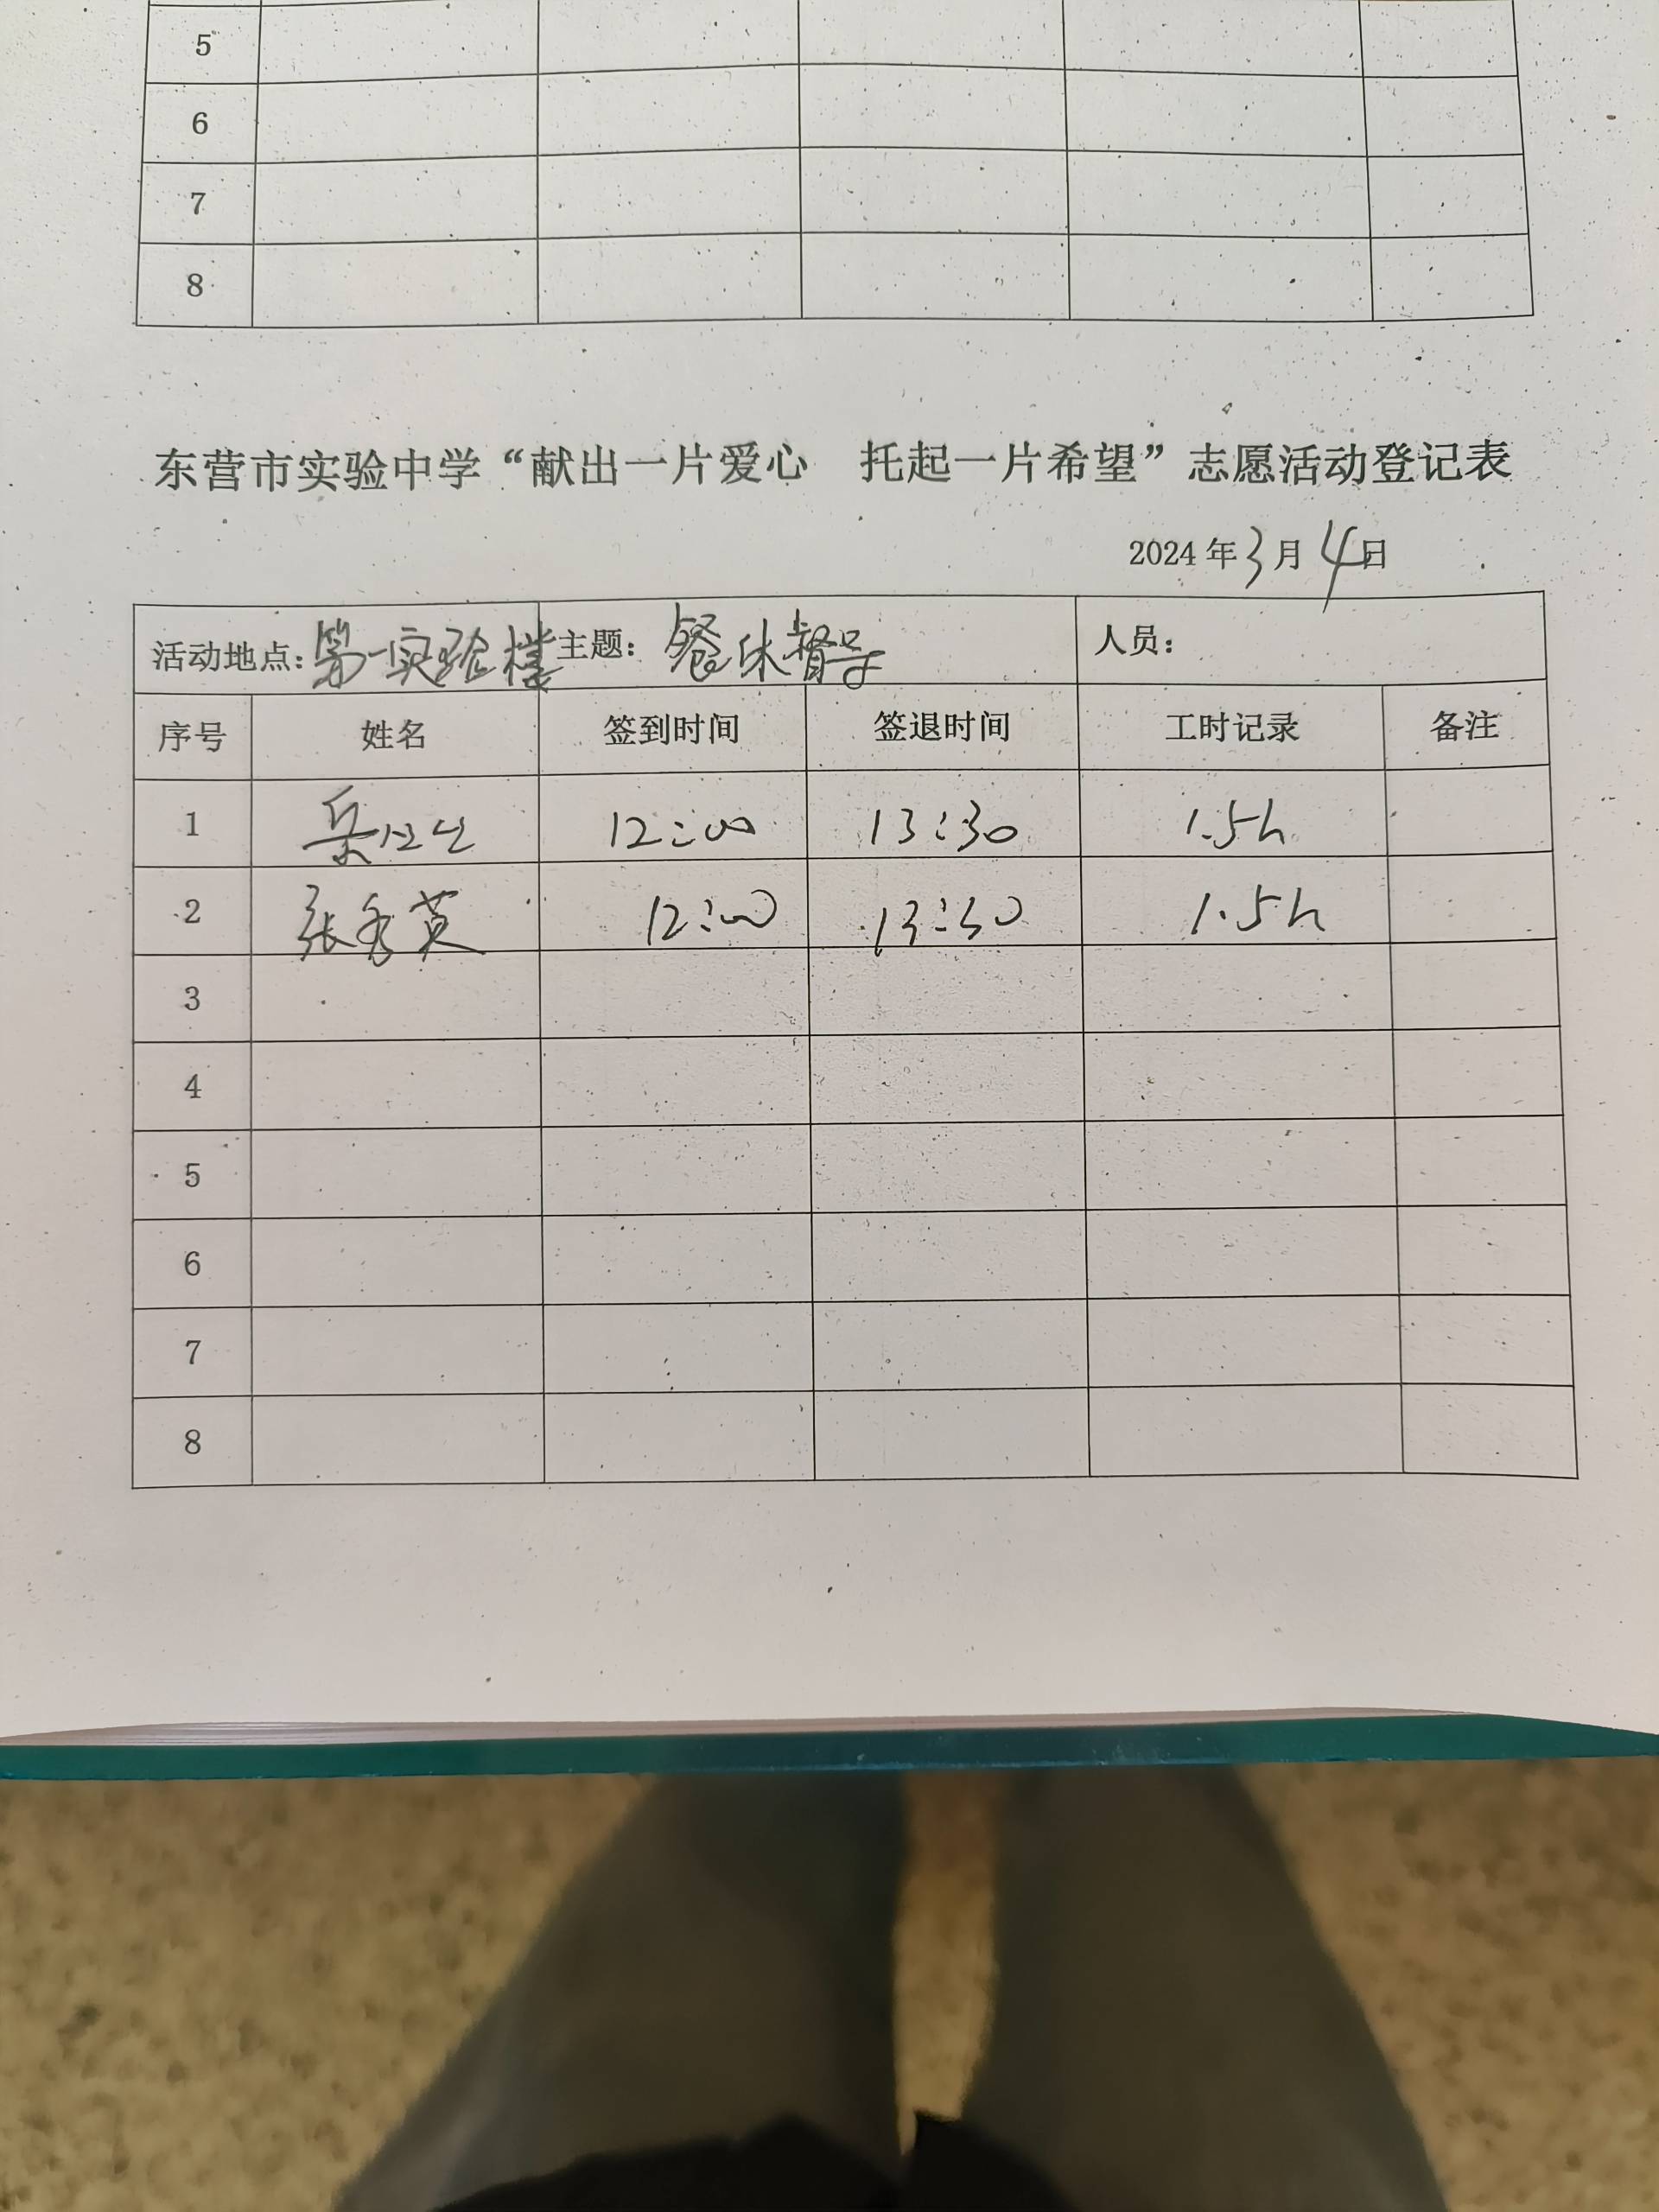 5
6
7
8
东营市实验中学“献出一片爱心 托起一片希望”志愿活动登记表
2024年3月4日
活动地点：第一实验楼 主题：餐休督导 人员：
序号 姓名 签到时间 签退时间 工时记录 备注
1 岳 12:00 13:30 1.5h
2 张秀英 12:00 13:30 1.5h
3
4
5
6
7
8